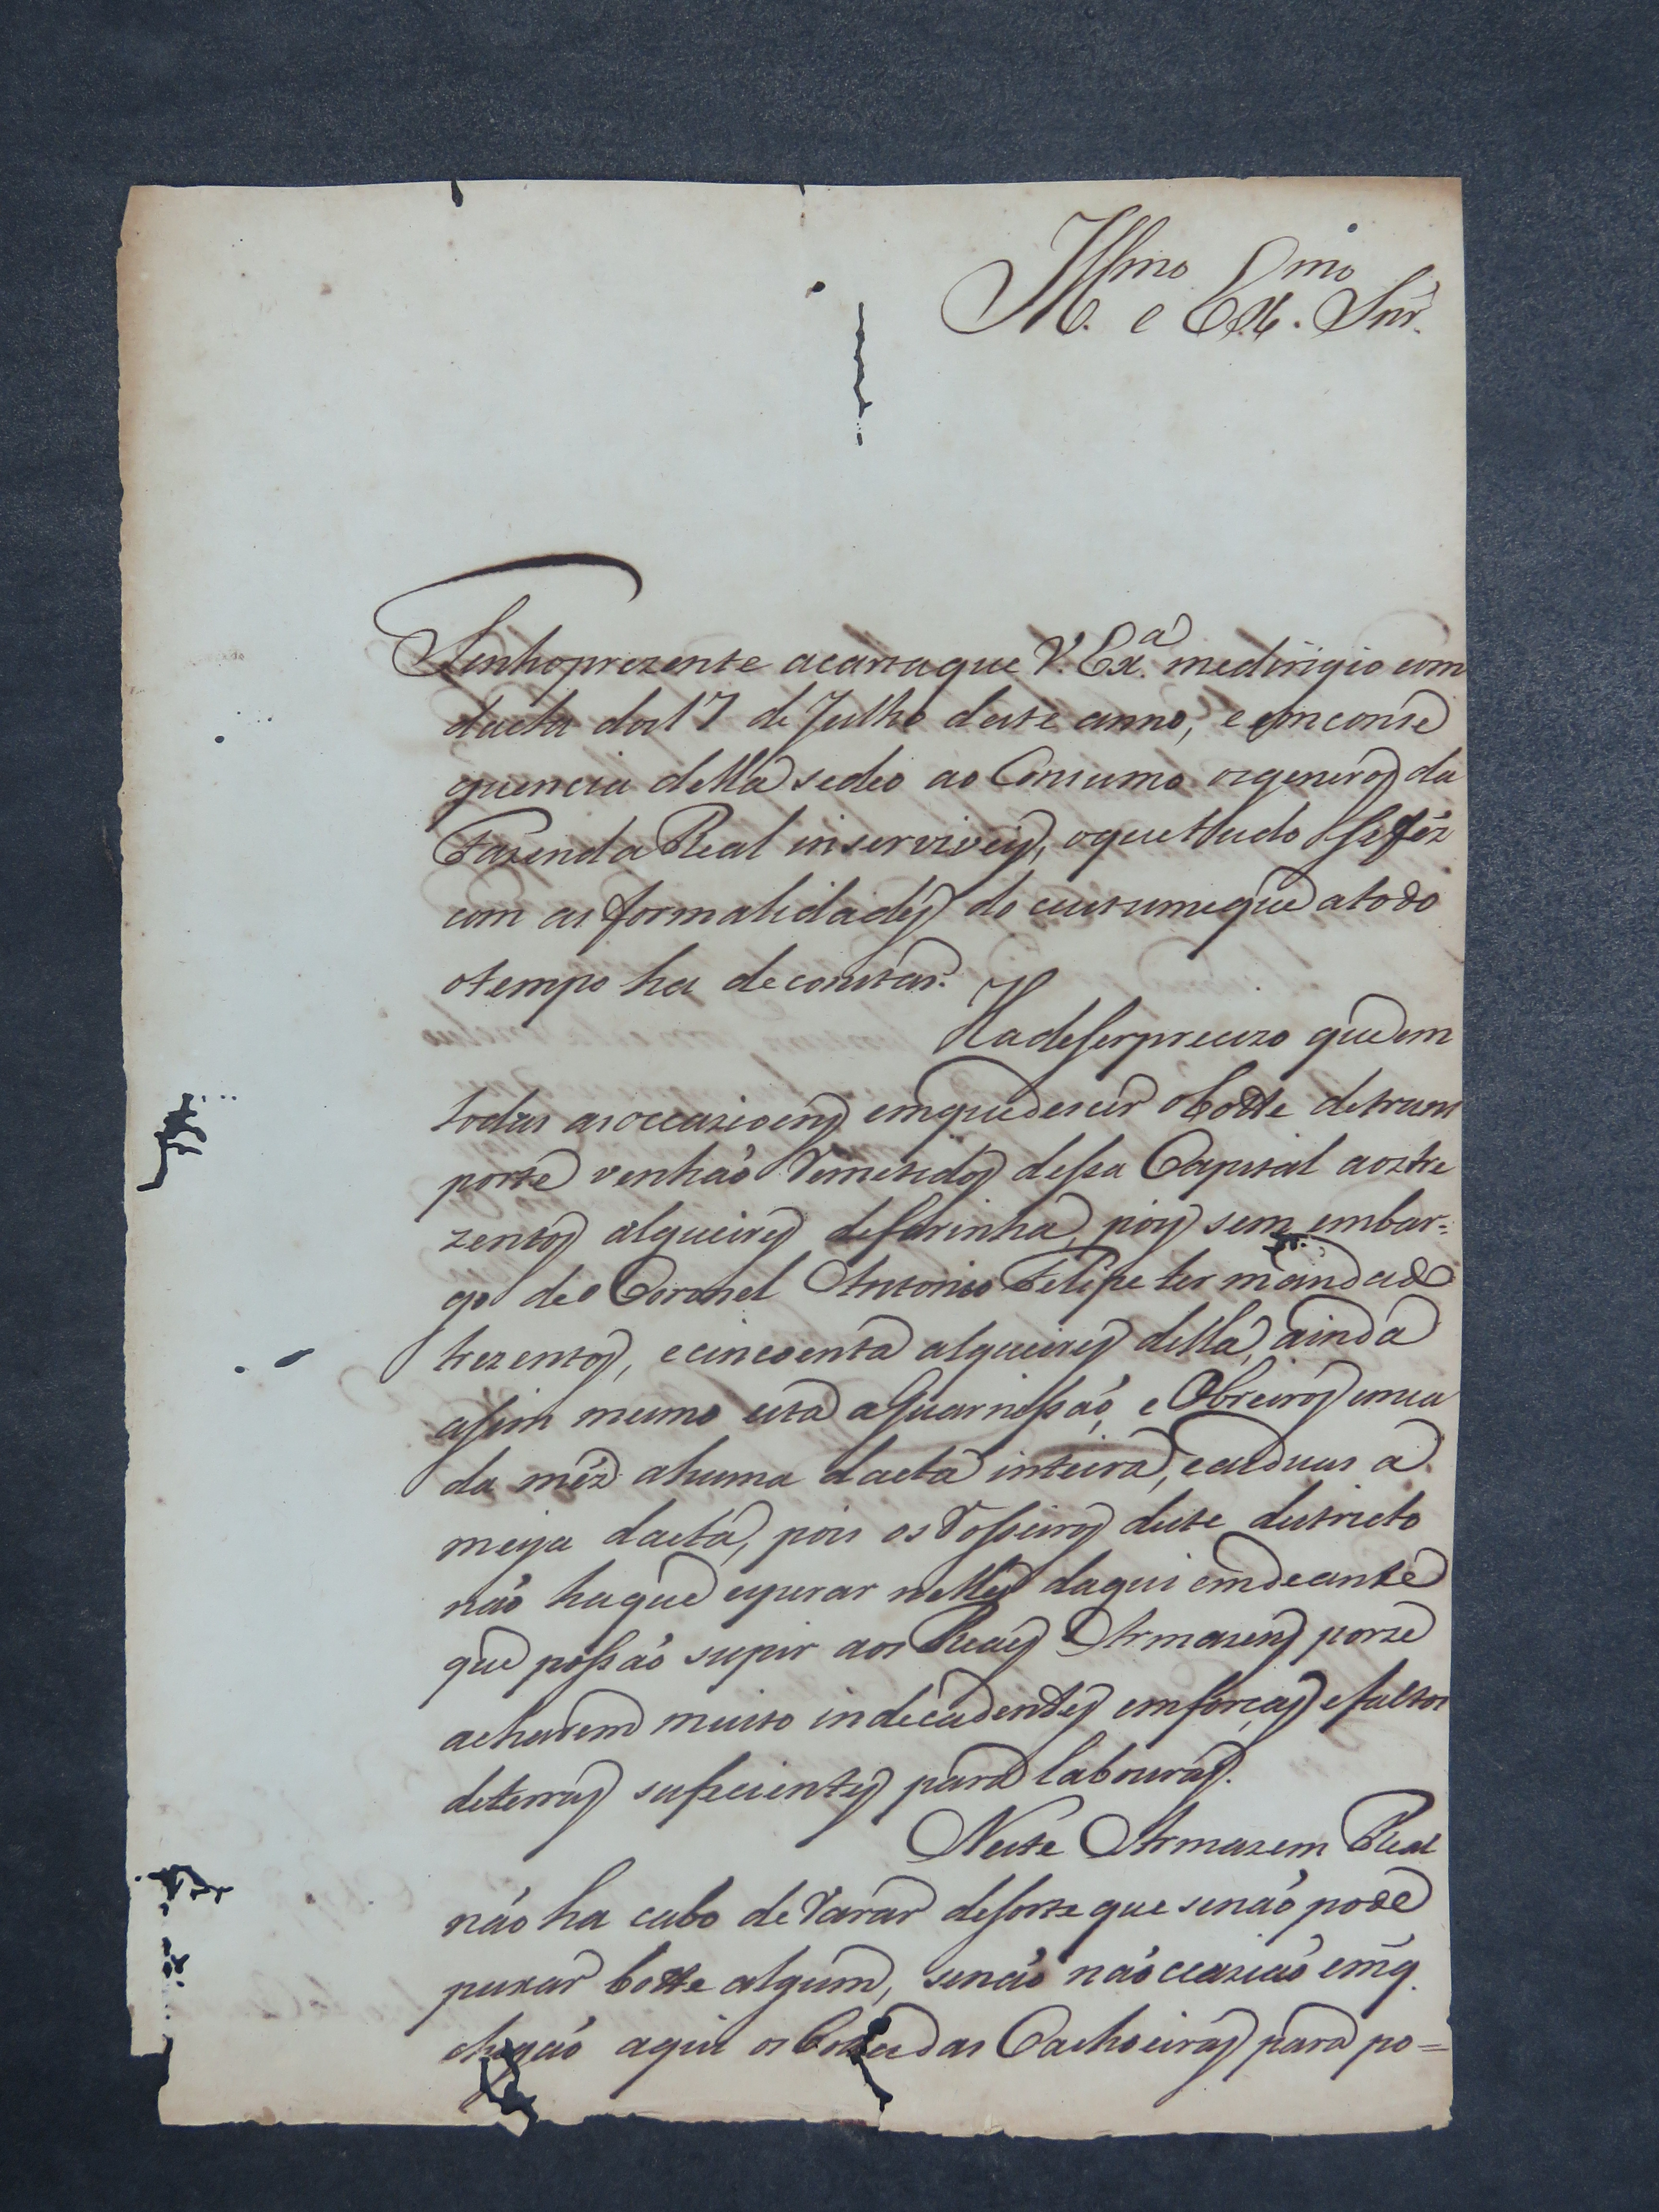 Ill.mo e Ex.mo Snr.
Tenho prezente a carta que V. Ex.a me dirigio com
dacta do 17 de Julho deste anno, e em conse
quencia della se deo ao Consumo os generos da
Fazenda Real inserviveis, o que tudo se fêz
com as formalidades do custume que a todo
o tempo ha de constar.
Ha de ser precizo que em
todas as occazioens em que descer o botte de trans
porte venhaõ remetidos dessa Capital aos tre
zentos alqueires de farinha, pois sem embar-
go de o Coronel Antonio Felipe ter mandado
trezentos, e cincoenta alqueires della, ainda
assim mesmo está a Guarnissaõ, e Obreiros em ca
da mêz a huma dacta inteira, e as duas a
meya dacta, pois os Rosseiros deste destricto
naõ ha que esperar nelles daqui em deante
que possaõ supir aos Reaes Armasens por se
acharem muito indecadentes em forças e faltos
de terras suficientes para labouras.
Neste Armazem Real
naõ ha cabo de varar de sorte que se naõ pode
puxar botte algum, senaõ na occaziaõ em q.
chegaõ aqui os das Cachoeiras para po=